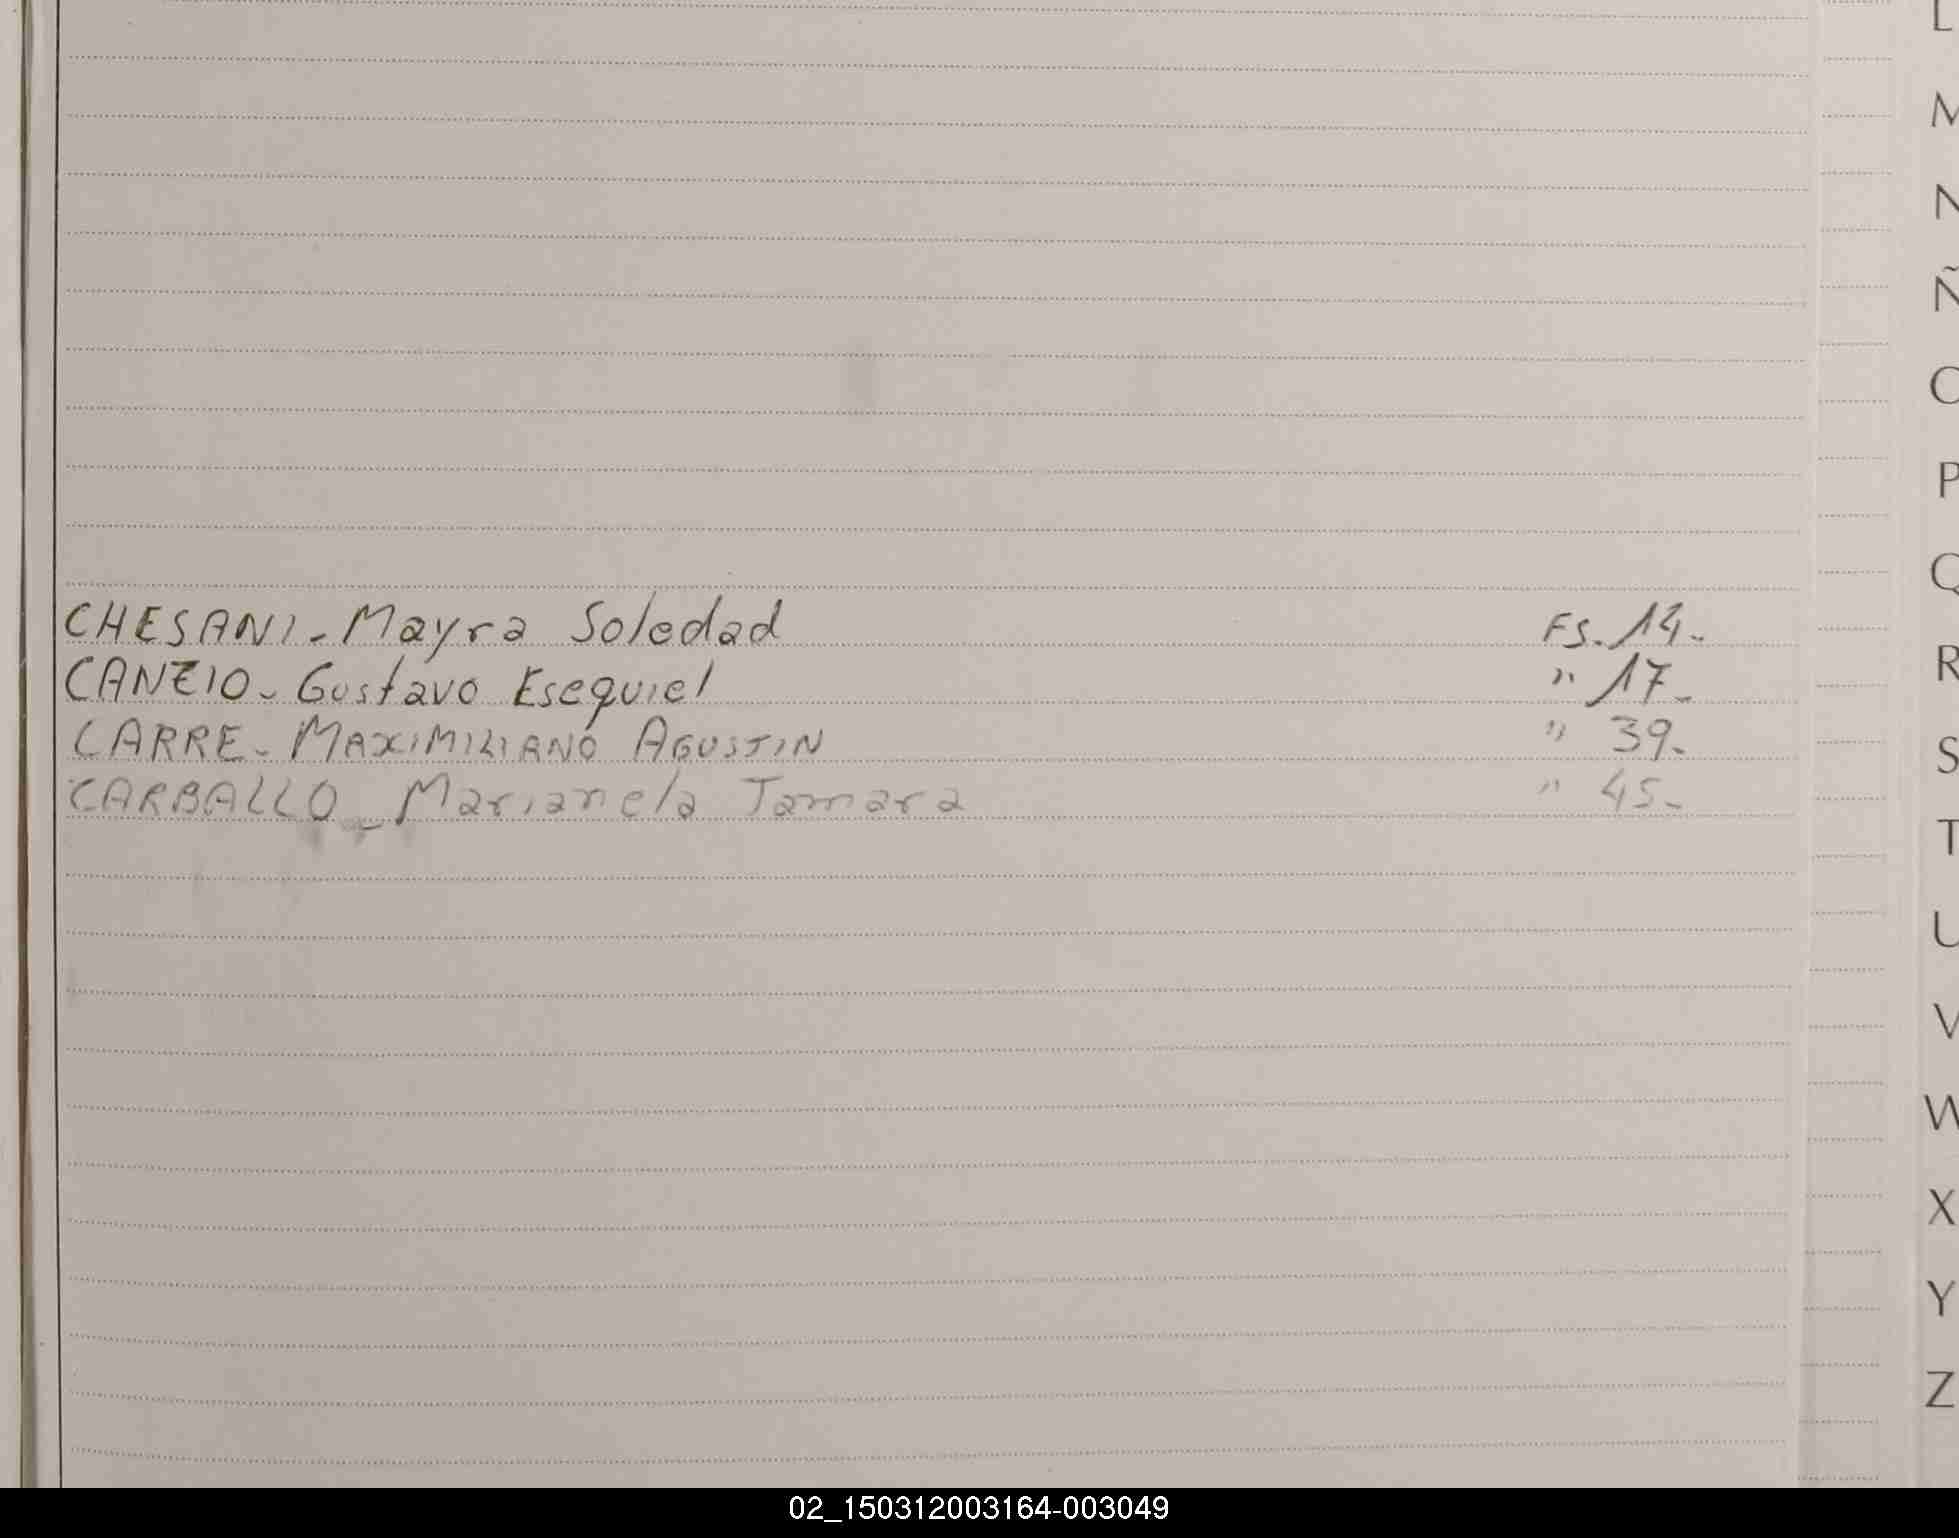 L
M
N
Ñ
O
P
Q
CHESANI - Mayra Soledad FS. 14.-
R
CANZIO - Gustavo Esequiel " 17.-
CARRE - MAXIMILIANO AGUSTIN " 39.-
S
CARBALLO - Marianela Tamara " 45.-
T
U
V
W
X
Y
Z
02_150312003164-003049